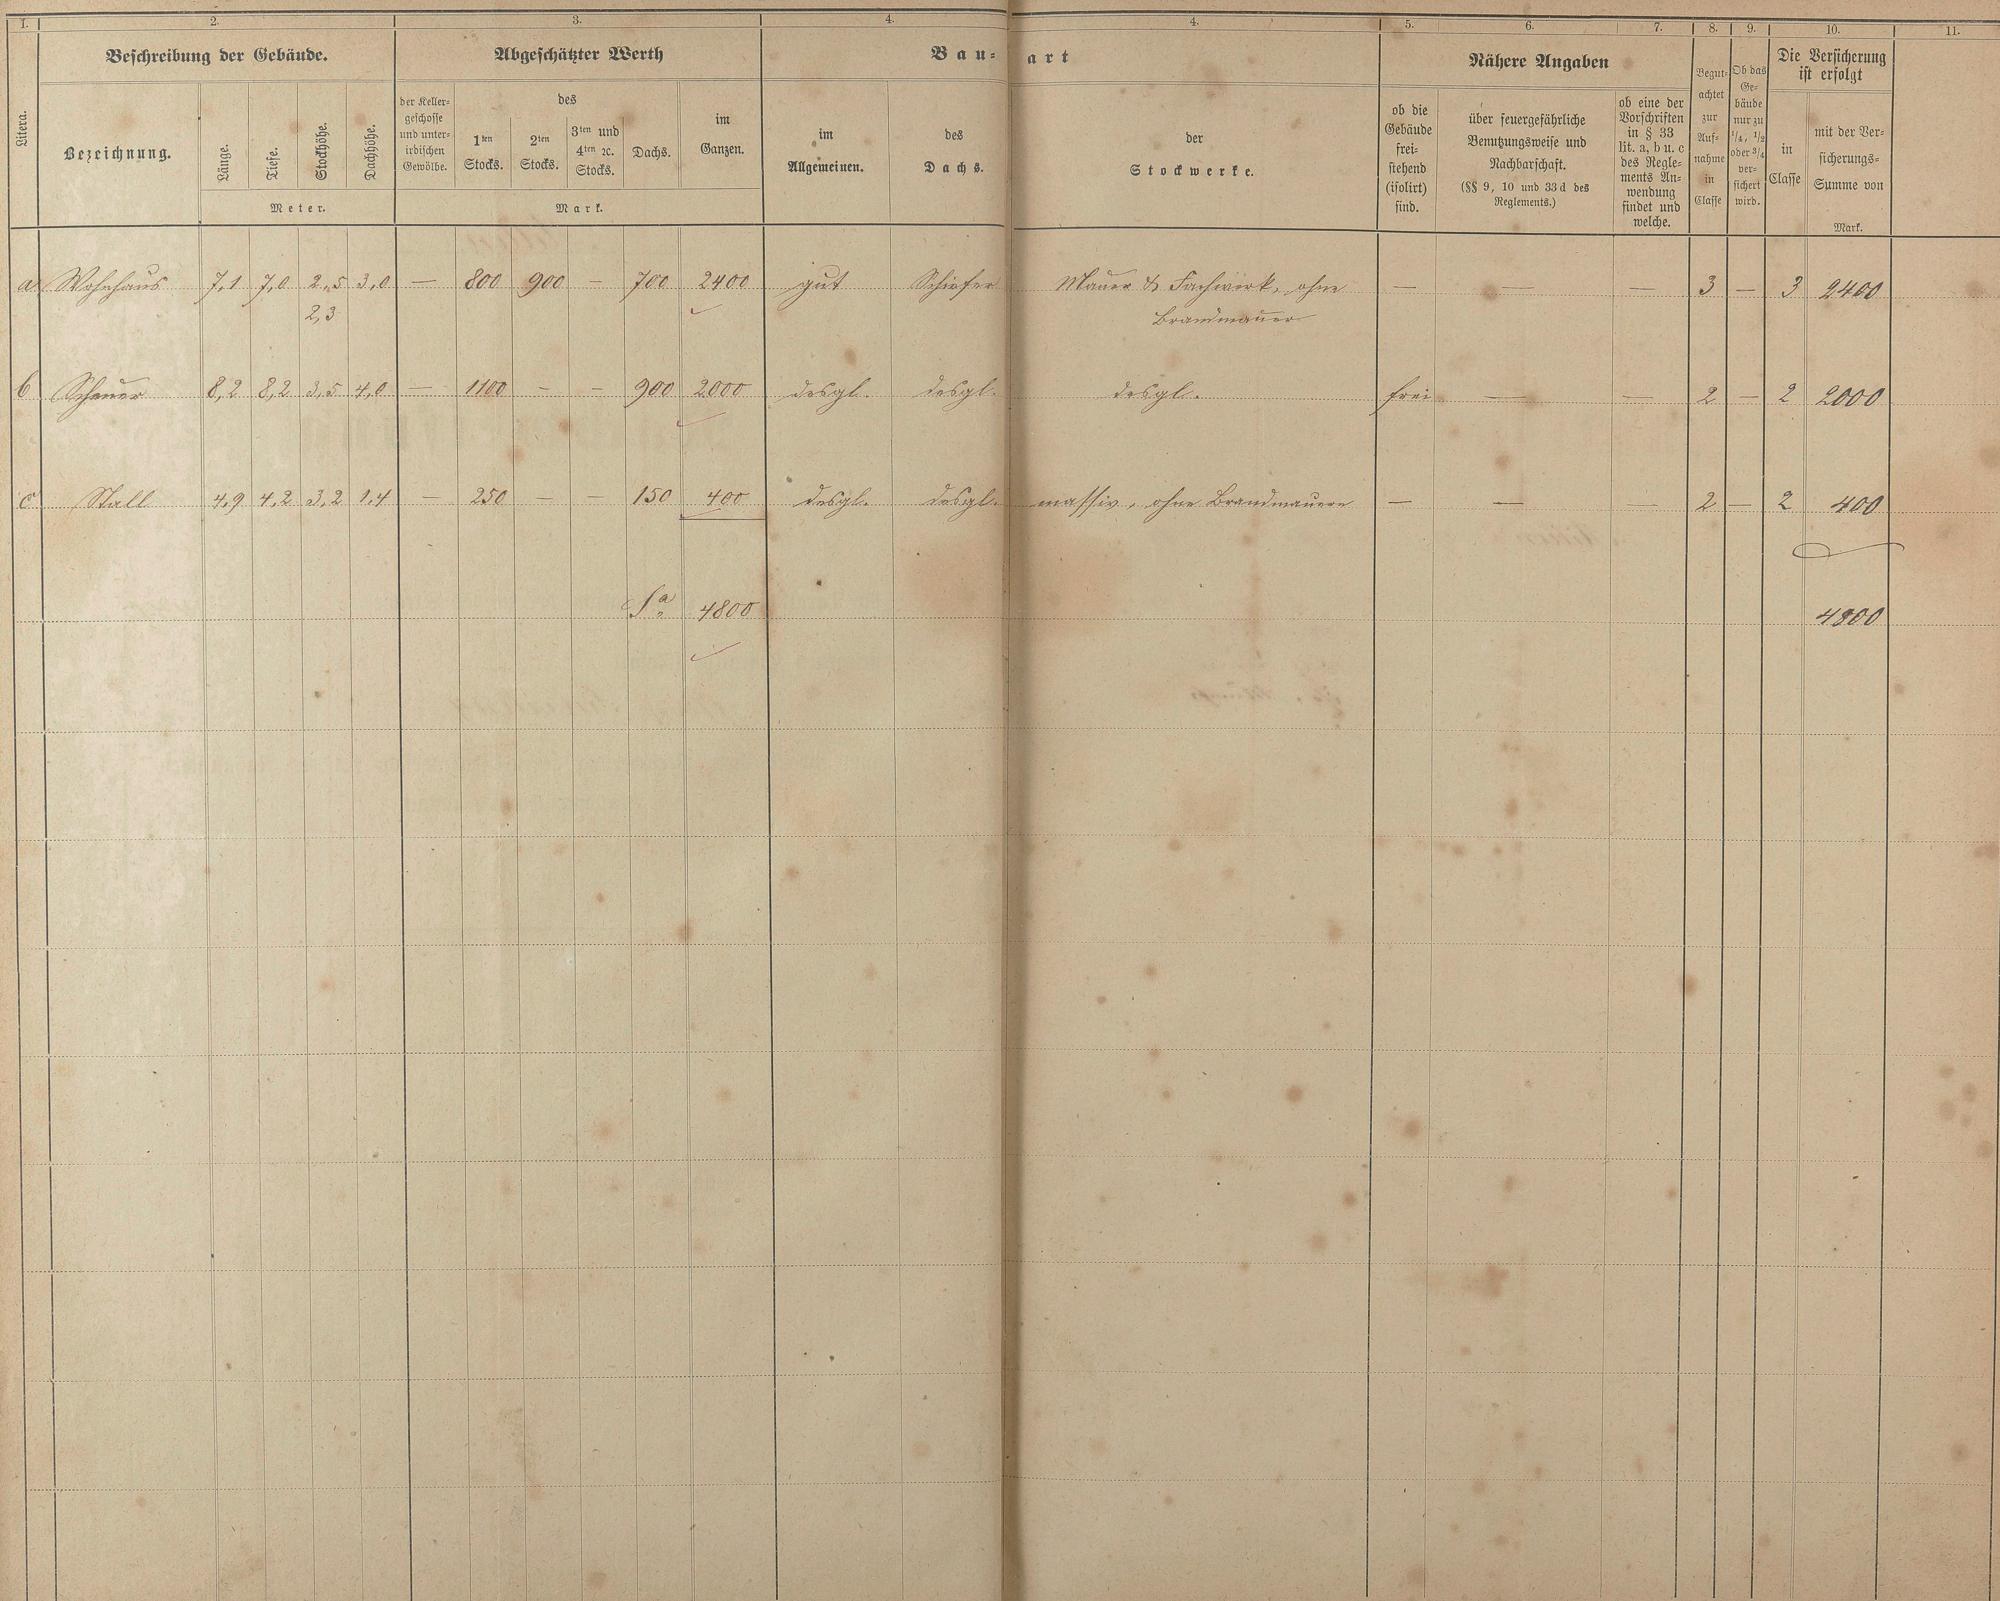 1. 2. 3. 4. 4. 5. 6. 7. 8. 9. 10. 11.
Litera.
Beschreibung der Gebäude.
Bezeichnung.
Länge.
Tiefe.
Stockhöhe.
Dachhöhe.
Meter.
Abgeschätzter Werth
der Keller-
geschosse
und unter-
irdischen
Gewölbe.
des
1ten
Stocks.
2ten
Stocks.
3ten und
4ten ꝛc.
Stocks.
Dachs.
im
Ganzen.
Mark.
Bau-
art
im
Allgemeinen.
des
Dachs.
der
Stockwerke.
Nähere Angaben
ob die
Gebäude
frei-
stehend
(isolirt)
sind.
über feuergefährliche
Benutzungsweise und
Nachbarschaft.
(§§ 9, 10 und 33 d des
Reglements.)
ob eine der
Vorschriften
in § 33
lit. a, b u. c
des Regle-
ments An-
wendung
findet und
welche.
Begut-
achtet
zur
Auf-
nahme
in
Classe
Ob das
Ge-
bäude
nur zu
1/4, 1/2
oder 3/4
ver-
sichert
wird.
Die Versicherung
ist erfolgt
in
Classe
mit der Ver-
sicherungs-
Summe von
Mark.
a Wohnhaus 7,1 7,0 2,5 3,0 — 800 900 — 700 2400 gut Schiefer Mauer & Fachwerk, ohne — — — 3 — 3 2400
2,3 Brandmauer
b Scheuer 8,2 8,2 3,5 4,0 — 1100 — — 900 2000 desgl. desgl. desgl. frei — — 2 — 2 2000
c Stall 4,9 4,2 3,2 1,4 — 250 — — 150 400 desgl. desgl. massiv, ohne Brandmauern — — — 2 — 2 400
Sa. 4800 4800